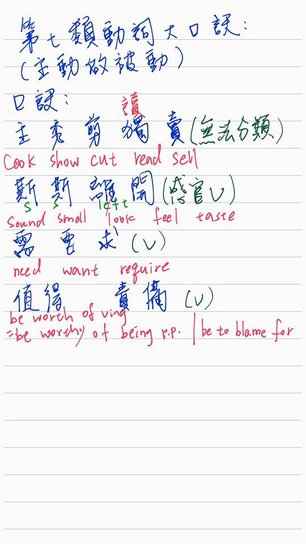 第七類動詞大口訣:
(主動故被動)
口訣:
讀
主秀剪獨賣(無法分類)
Cook show cut read sell
斯斯離開(感官V)
s s left
sound smell look feel taste
需要求(V)
need want require
值得 責備(V)
be worth of ving
=be worthy of being p.p. | be to blame for